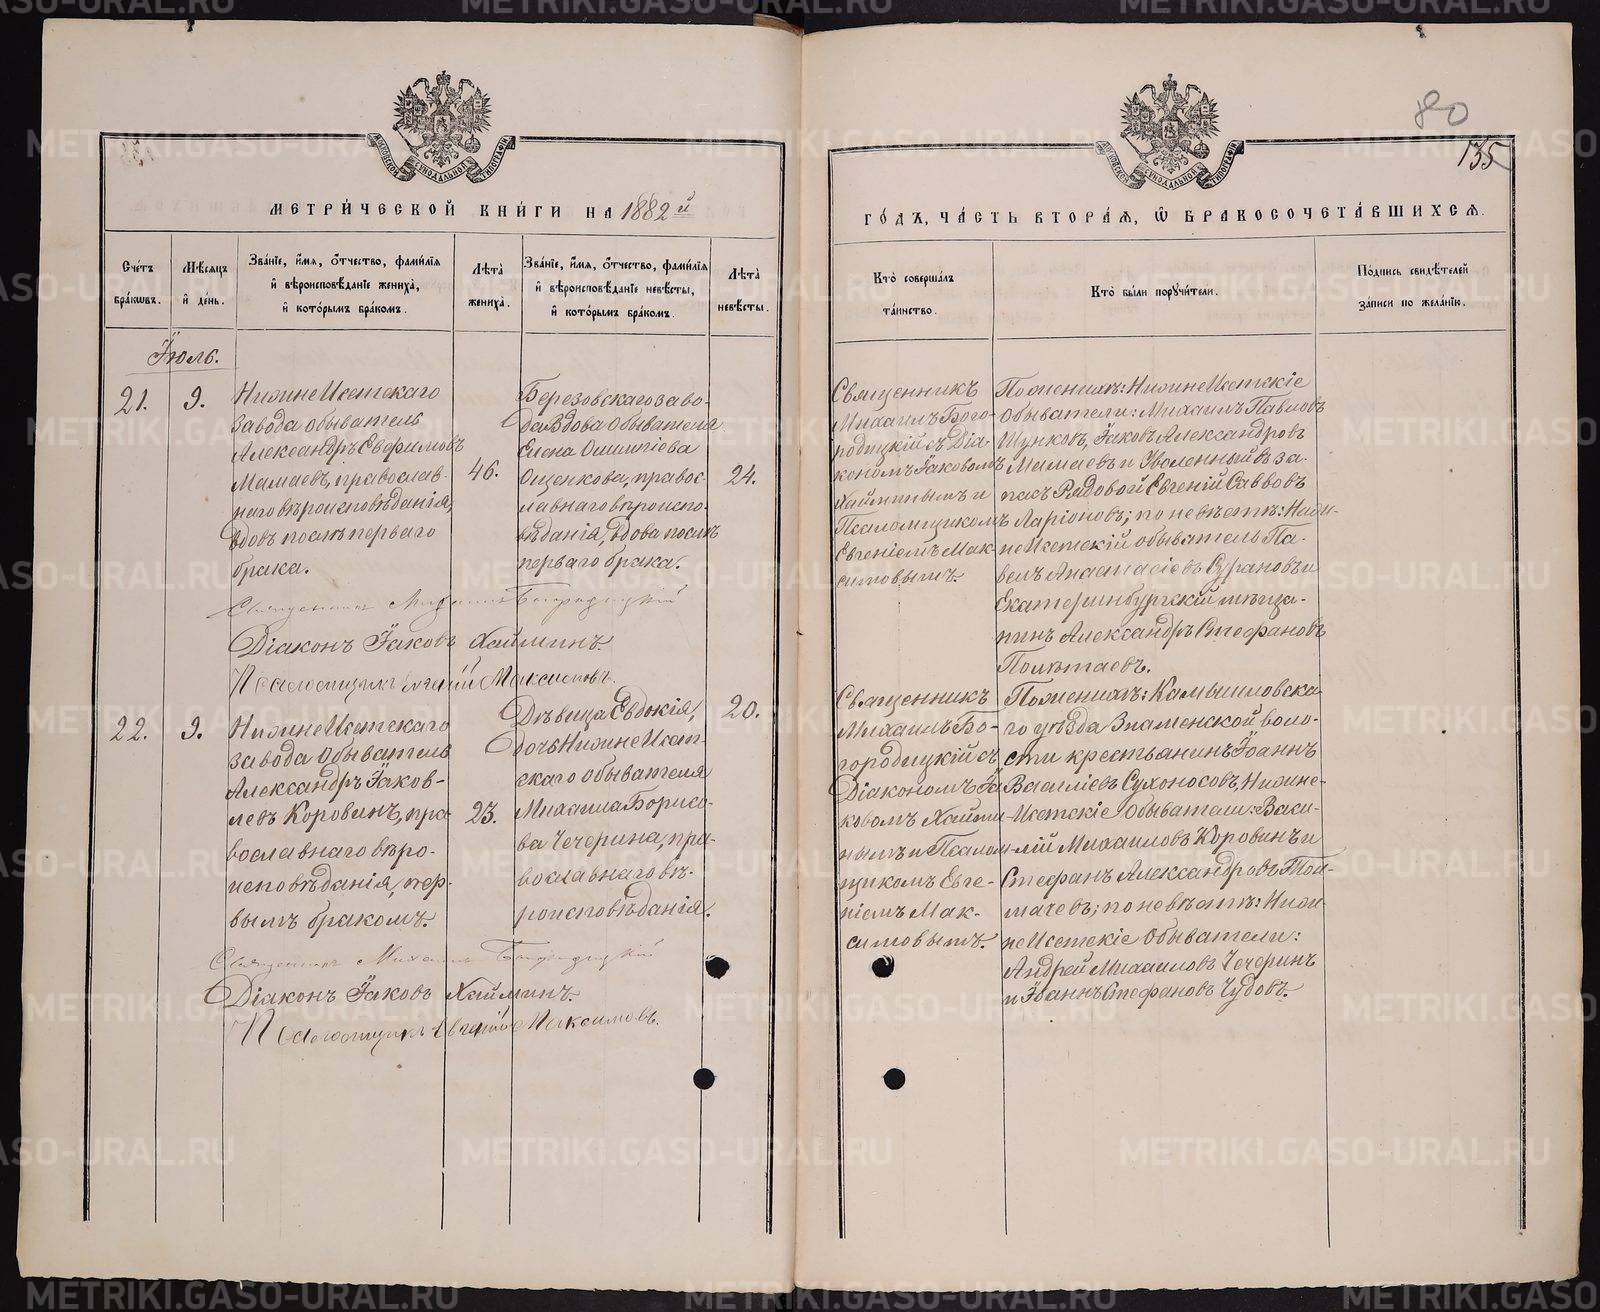 МЕТРИ́ЧЕСКОЙ КНИ́ГИ НА 1882й
Сче́тъ бра́ковъ.
Мѣ́сяцъ и́ де́нь.
Зва́нїе, и́мя, о́тчество, фами́лїя и́ вѣроисповѣ́данїе жениха̀, и́ кото́рымъ бра́комъ.
Лѣта̀ жениха̀.
Зва́нїе, и́мя, о́тчество, фами́лїя и́ вѣроисповѣ́данїе невѣ́сты, и́ кото́рымъ бра́комъ.
Лѣта̀ невѣ́сты.
Іюль.
21.
9.
НижнеИсетскаго
завода обыватель
Александръ Евфимовъ
Мамаевъ, православ-
наго вѣроисповѣданія,
вдовъ послѣ перваго
брака.
46.
Березовскаго заво-
да Вдова Обывателя
Елена
Ощепкова, правос-
лавнаго вѣроиспо-
вѣданія, вдова послѣ
перваго брака.
24.
Священникъ Михаилъ Богородицкій
Діаконъ Іаковъ Хаймин.
Псаломщикъ Евгеній Максимовъ.
22.
9.
НижнеИсетскаго
завода Обыватель
Александръ Іаков-
левъ Коровинъ, пра-
вославнаго вѣро-
исповѣданія, пер-
вымъ бракомъ.
23.
Дѣвица Евдокія,
дочь НижнеИсет-
скаго обывателя
Михаила Борисо-
ва Чечерина, пра-
вославнаго вѣ-
роисповѣданія.
20.
Священникъ Михаилъ Богородицкій
Діаконъ Іаковъ Хайминъ.
Псаломщикъ Евгеній Максимовъ.
80
135
ГО́ДЪ, ЧА́СТЬ ВТОРА́Я, Ѡ҆ БРАКОСОЧЕТА́ВШИХСЯ.
Кто̀ соверша́лъ та́инство.
Кто̀ бы́ли поручи́тели.
По́дпись свидѣ́телей за́писи по жела́нїю.
Священникъ
Михаилъ Бого-
родицкій съ Діа-
кономъ Іаковомъ
Хайминымъ и
Псаломщикомъ
Евгеніемъ Мак-
симовымъ.
По женихѣ: НижнеИсетскіе
Обыватели: Михаилъ Павловъ
Шунковъ, Іаковъ Александровъ
Мамаевъ и Уволенный въ за-
пасъ Рядовой Евгеній Саввовъ
Ларіоновъ; по невѣстѣ: Ниж-
неИсетскій обыватель Па-
велъ и
Екатеринбургскій мѣща-
нинъ Александръ Стефановъ
Полѣтаевъ.
Священникъ
Михаилъ Бо-
городицкій съ
Діакономъ Іа-
ковомъ Хайми-
нымъ и Псалом-
щикомъ Евге-
ніемъ Мак-
симовымъ.
По женихѣ: Камышловска-
го уѣзда Знаменской воло-
сти крестьянинъ Іоаннъ
Василіевъ Сухоносовъ, Нижне-
Исетскіе Обыватели: Васи-
лій Михаиловъ Коровинъ и
Стефанъ Александровъ Тол-
мачевъ; по невѣстѣ: Ниж-
неИсетскіе Обыватели:
Андрей Михаиловъ Чечеринъ
и Іоаннъ Стефановъ Чудовъ.